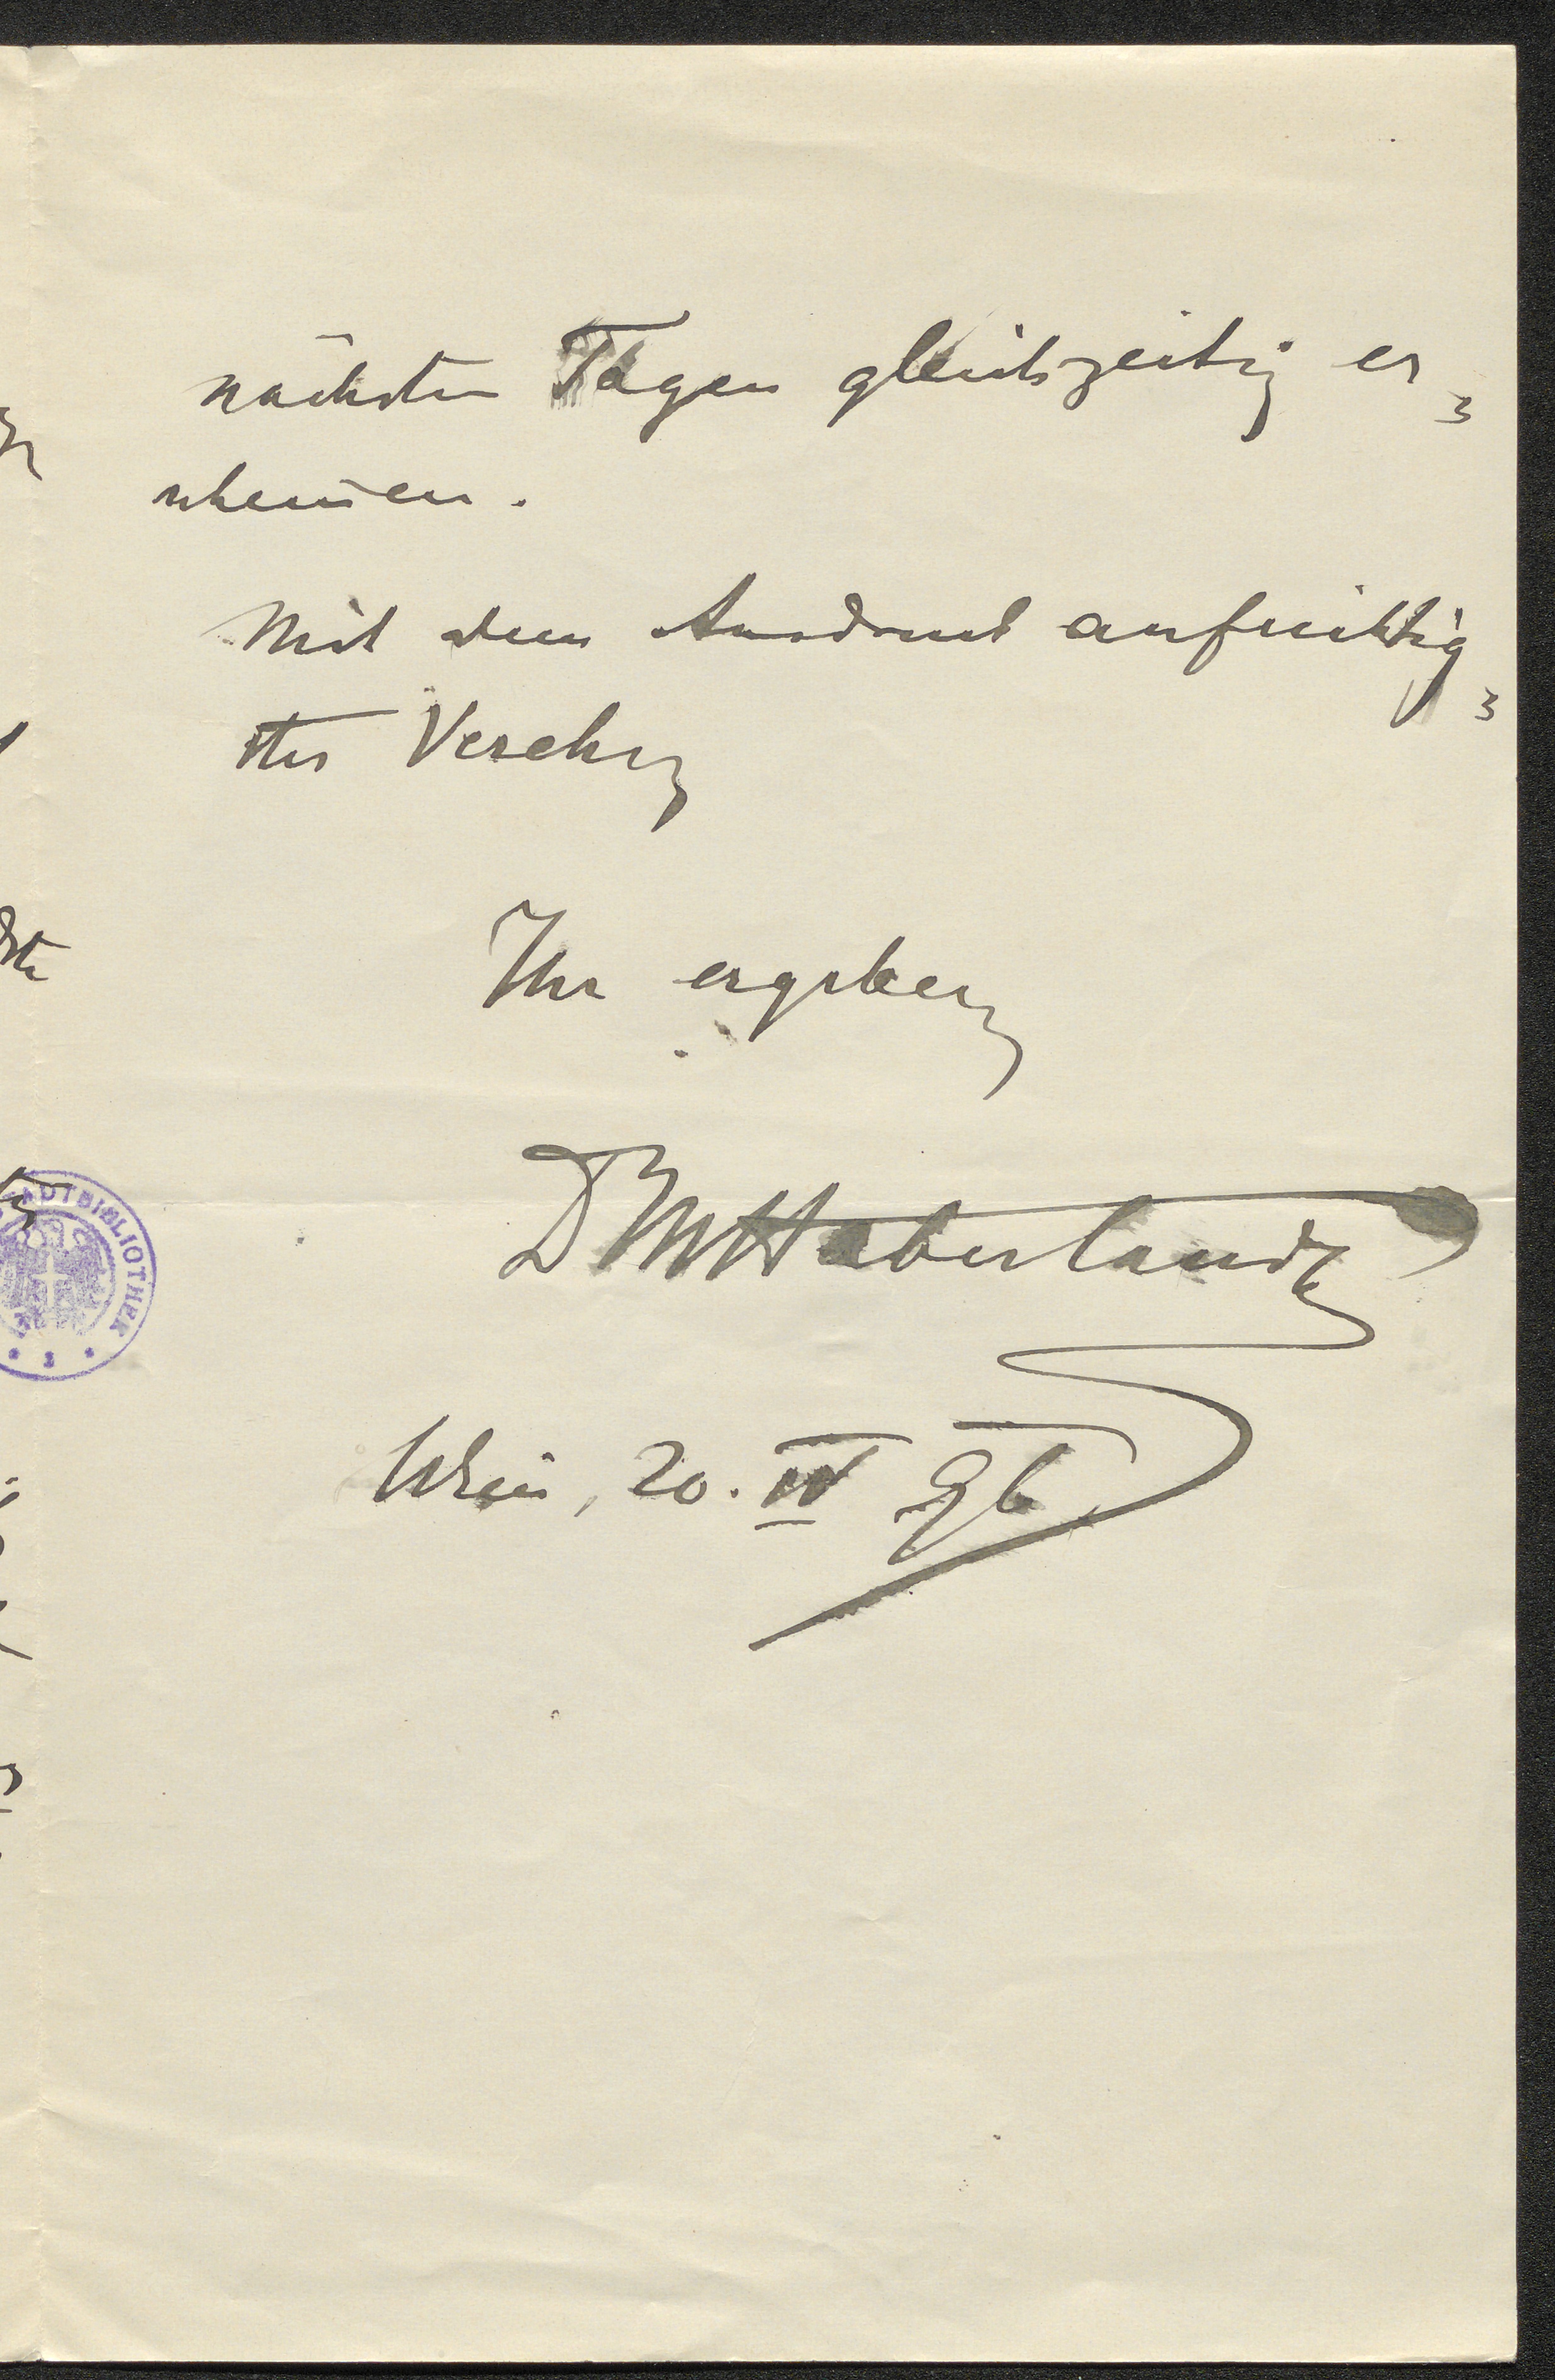 nächsten Tagen gleichzeitig er-
scheinen.
Mit dem Ausdruck aufrichtig-
ster Verehrung
Ihr ergebener
Dr M Haberlandt
STADTBIBLIOTHEK
Wien, 20. IV 96